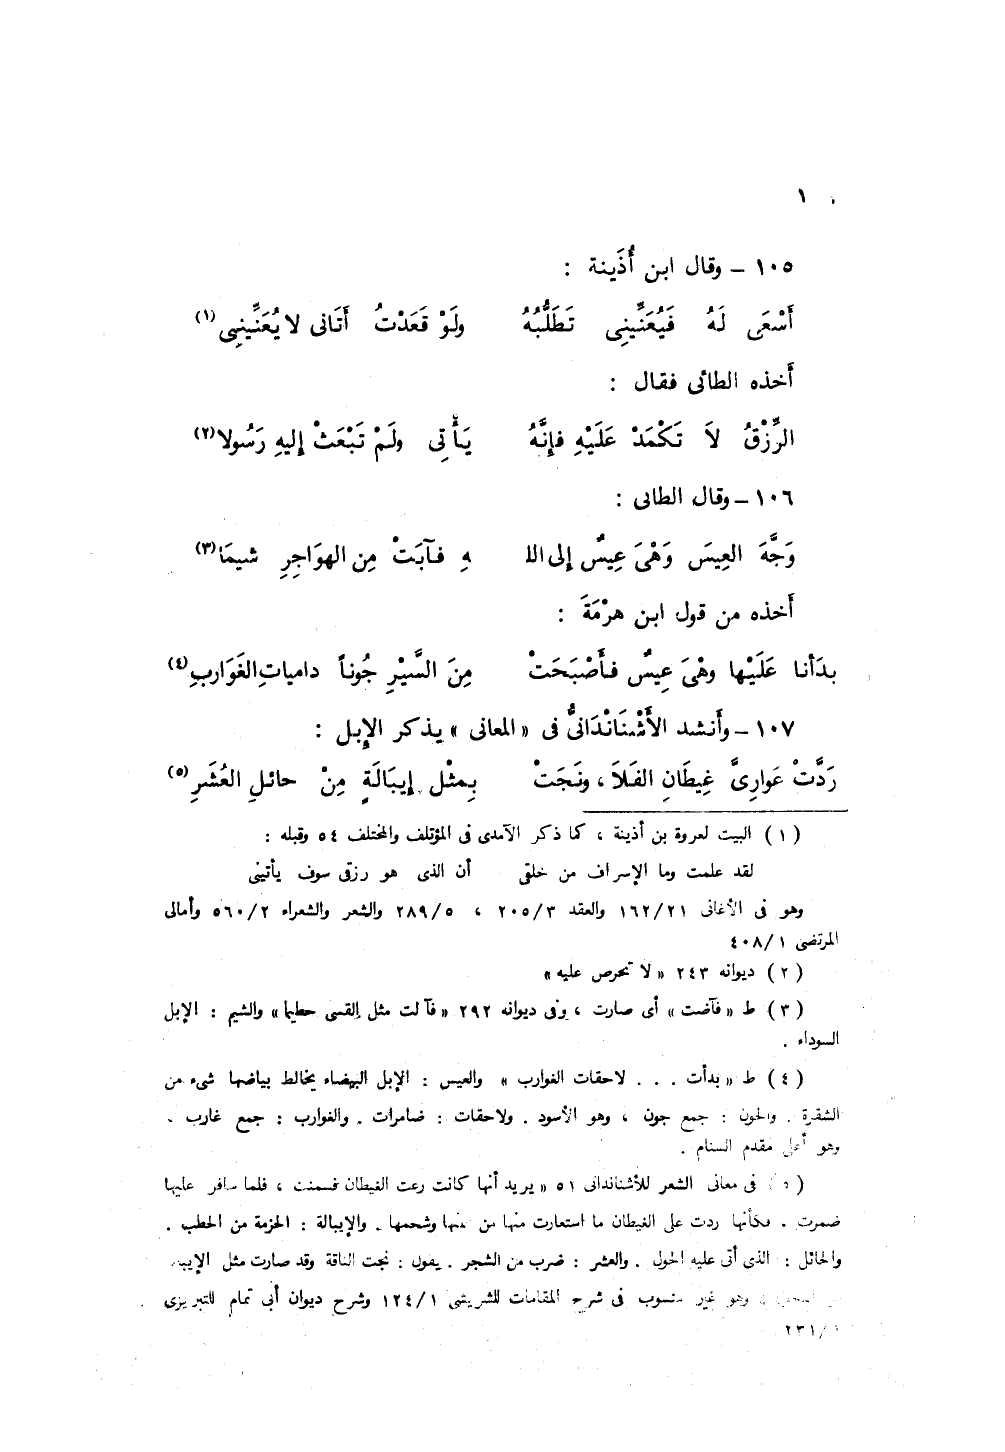 ١
١٠٥ – وقال ابن أُذَينة :
أَسْعَى لَهُ فَيُعَنِّينِى تَطَلُّبُهُ ولَوْ قَعَدْتُ أَتَانى لا يُعَنِّينِى (١)
أخذه الطائى فقال :
الرِّزْقُ لاَ تَكْمَدْ عَلَيْهِ فإِنَّهُ يَأْتِى ولَمْ تَبْعَثْ إليهِ رَسُولا (٢)
١٠٦ – وقال الطائى :
وَجَّهَ العِيسَ وَهْىَ عِيسٌ إلى اللـ ـهِ فآبَتْ مِن الهوَاجِرِ شيمَا (٣)
أَخذه من قول ابن هرْمَةَ :
بدَأنا عَلَيْها وهْىَ عِيسٌ فأَصْبَحَتْ مِنَ السَّيْرِ جُوناً دامياتِ الغَوَاربِ (٤)
١٠٧ – وأَنشد الأُشْنَانْدَانىُّ فى « المعانى » يذكر الإبل :
رَدَّتْ عَوارِىَّ غِيطَانِ الفَلاَ ، ونَجَتْ بِمثْل إيبَالَةٍ مِنْ حائلِ العُشَرِ (٥)
( ١ ) البيت لعروة بن أذينة ، كما ذكر الآمدى فى المؤتلف والمختلف ٥٤ وقبله :
لقد علمت وما الإسراف من خلقى أن الذى هو رزقى سوف يأتينى
وهو فى الأغانى ١٦٢/٢١ والعقد ٢٠٥/٣ ، ٢٨٩/٥ والشعر والشعراء ٥٦٠/٢ وأمالى
المرتضى ٤٠٨/١
( ٢ ) ديوانه ٢٤٣ « لا تحرص عليه »
( ٣ ) ط « فآضت » أى صارت ، وفى ديوانه ٢٩٢ « فآلت مثل القسى حطيما » والشيم : الإبل
السوداء .
( ٤ ) ط « بدأت . . . لاحقات الغوارب » والعيس : الإبل البيضاء يخالط بياضها شىء من
الشقرة . والجون : جمع جون ، وهو الأسود . ولاحقات : ضامرات . والغوارب : جمع غارب .
وهو أعلى مقدم السنام .
( ٥ ) فى معانى الشعر للأشناندانى ٥١ « يريد أنها كانت رعت الغيطان فسمنت ، فلما سافر عليها
ضمرت . فكأنها ردت على الغيطان ما استعارت منها من لحمها وشحمها . والإيبالة : الحزمة من الحطب .
والحائل : الذى أتى عليه الحول . والعشر : ضرب من الشجر . يقول : نجت الناقة وقد صارت مثل الإيبالة
وهو غير منسوب فى شرح المقامات للشريشى ١٢٤/١ وشرح ديوان أبى تمام للتبريزى
٢٣١/١